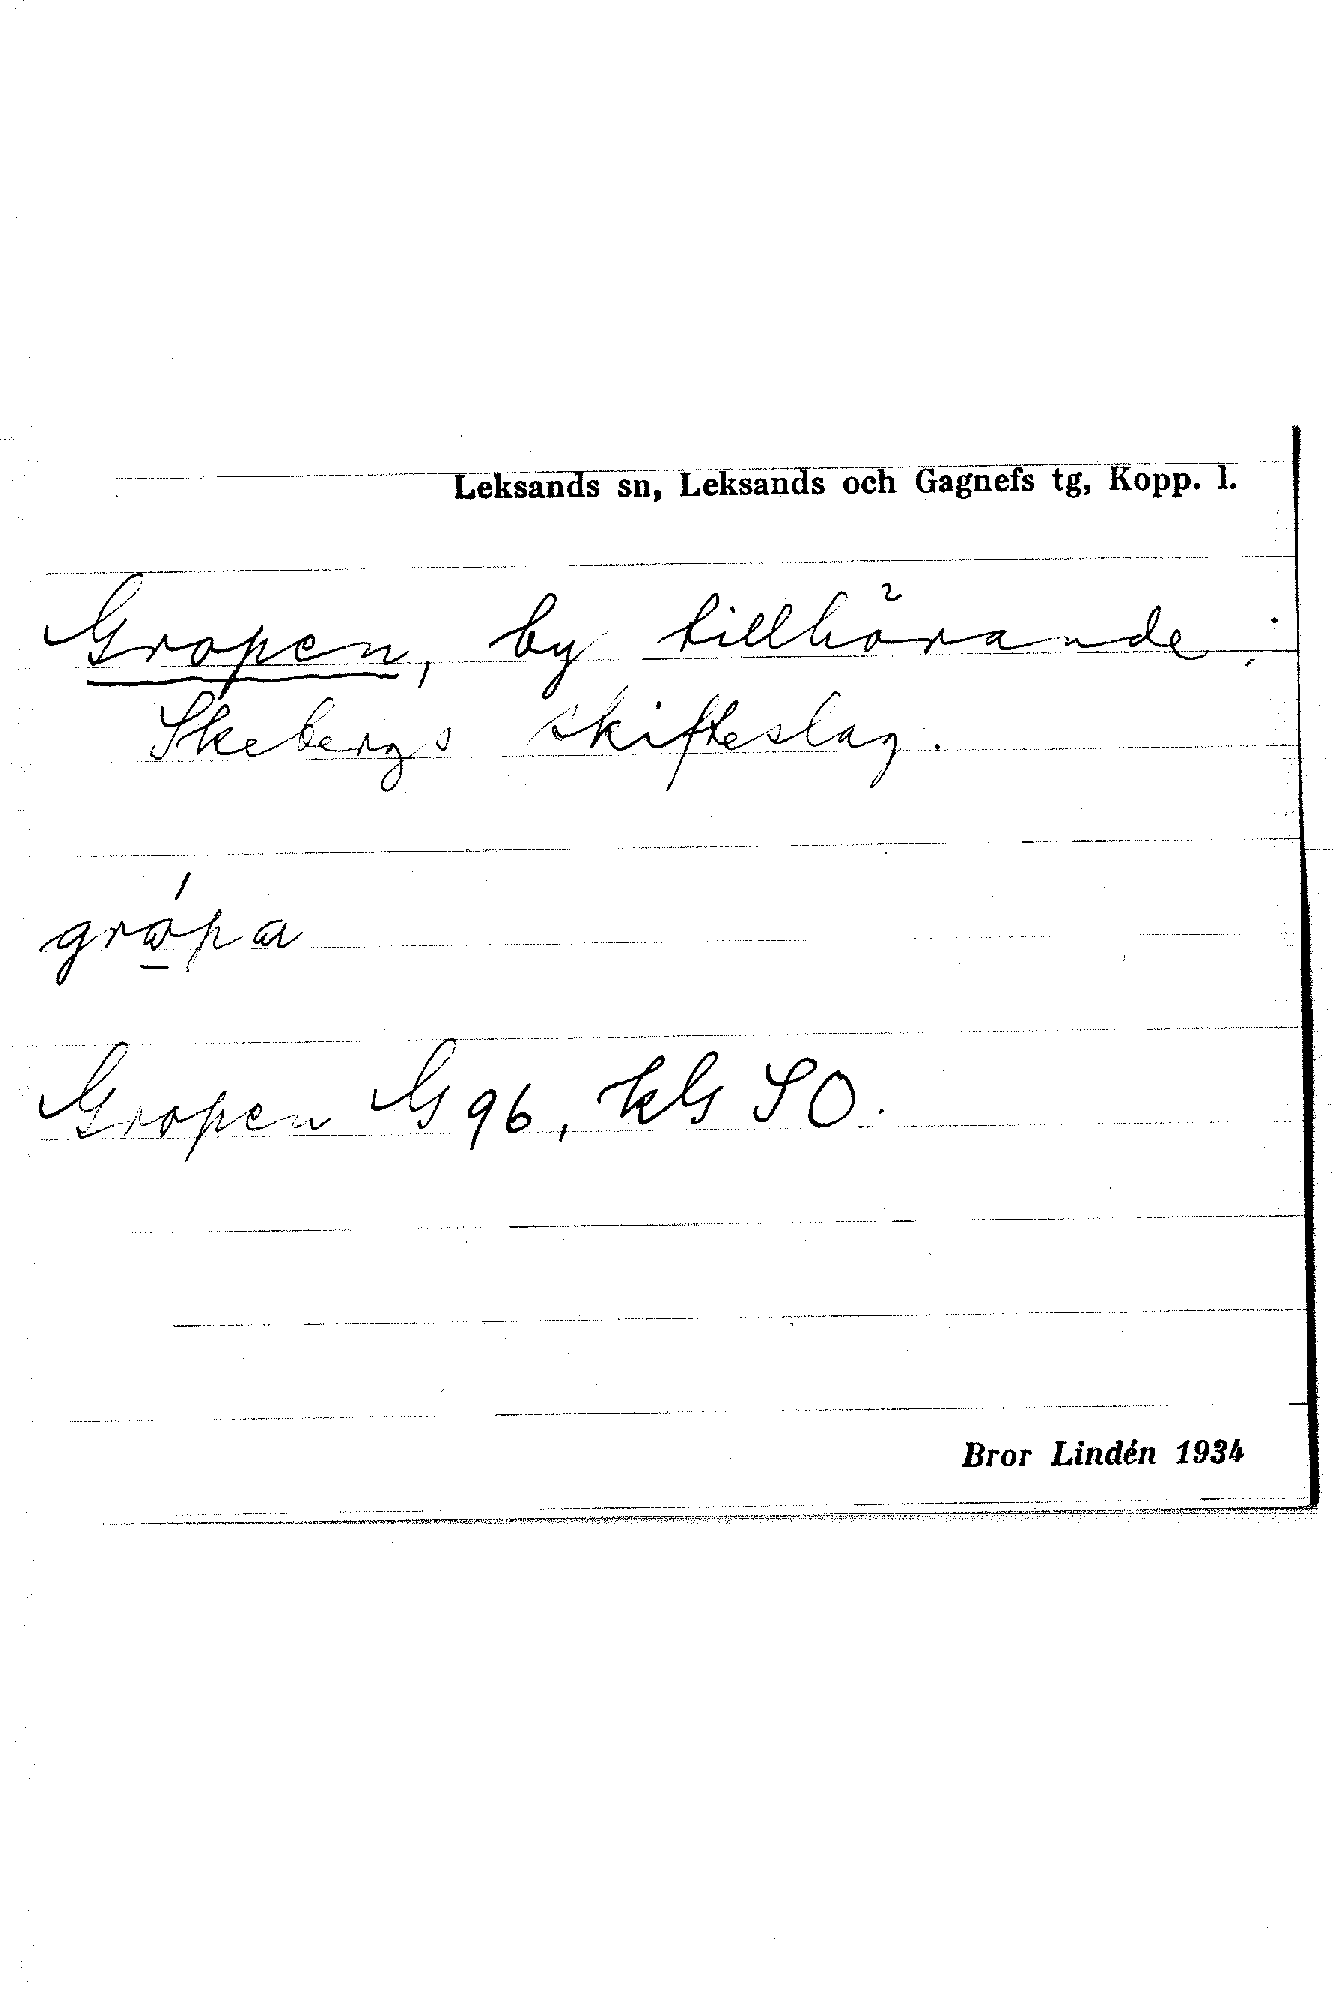 Leksands sn, Leksands och Gagnefs tg, Kopp. l.
Gropen, by tillhörande
Skebergs skifteslag.
Gropen G 96, kG SO.
Bror Lindén 1934